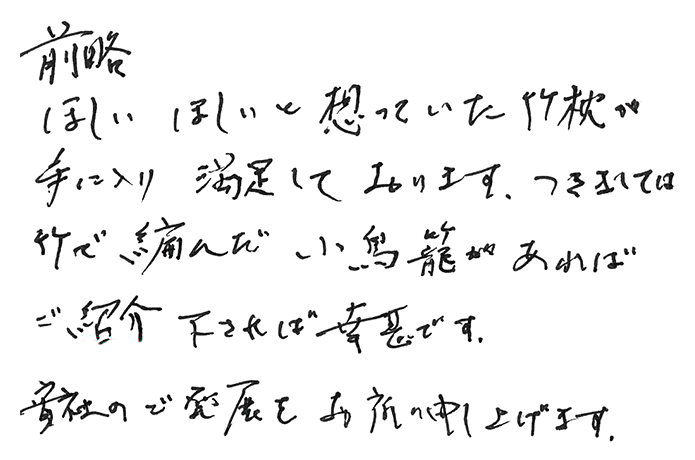 前略
ほしい ほしいと想っていた竹枕が
手に入り 満足して おります。つきましては
竹で編んだ 小鳥籠が あれば
ご紹介 下されば幸甚です。
貴社のご発展を お祈り申し上げます。